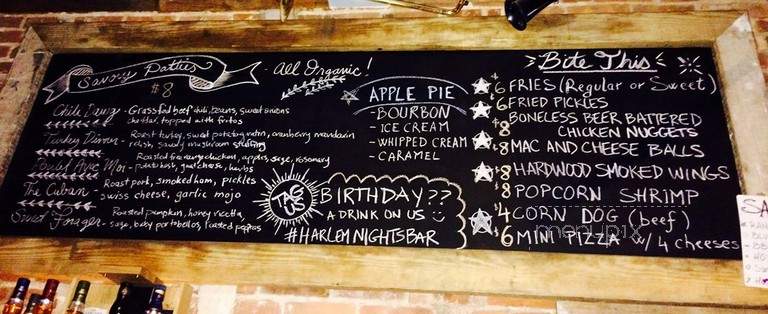 Savory Patties
$8
- All Organic!
Chili Dawg - Grassfed beef chili, beans, sweet onions
cheddar, topped with fritos
Turkey Dinner - Roast turkey, sweet potato gratin, cranberry mandarin
relish, savory mushroom stuffing
Roasted free range chicken, apples, sage, rosemary
goat cheese, herbs
The Cuban - Roast pork, smoked ham, pickles
swiss cheese, garlic mojo
Sweet Forager - Roasted pumpkin, honey ricotta,
sage, baby portobellos, roasted pepitas
APPLE PIE
- BOURBON
- ICE CREAM
- WHIPPED CREAM
- CARAMEL
TAG US
BIRTHDAY??
A DRINK ON US
#HARLEMNIGHTSBAR
Bite This
$6 FRIES (Regular or Sweet)
$6 FRIED PICKLES
$8 BONELESS BEER BATTERED
CHICKEN NUGGETS
$8 MAC AND CHEESE BALLS
$8 HARDWOOD SMOKED WINGS
$8 POPCORN SHRIMP
$4 CORN DOG (beef)
$6 MINI PIZZA w/ 4 cheeses
menupix
SA